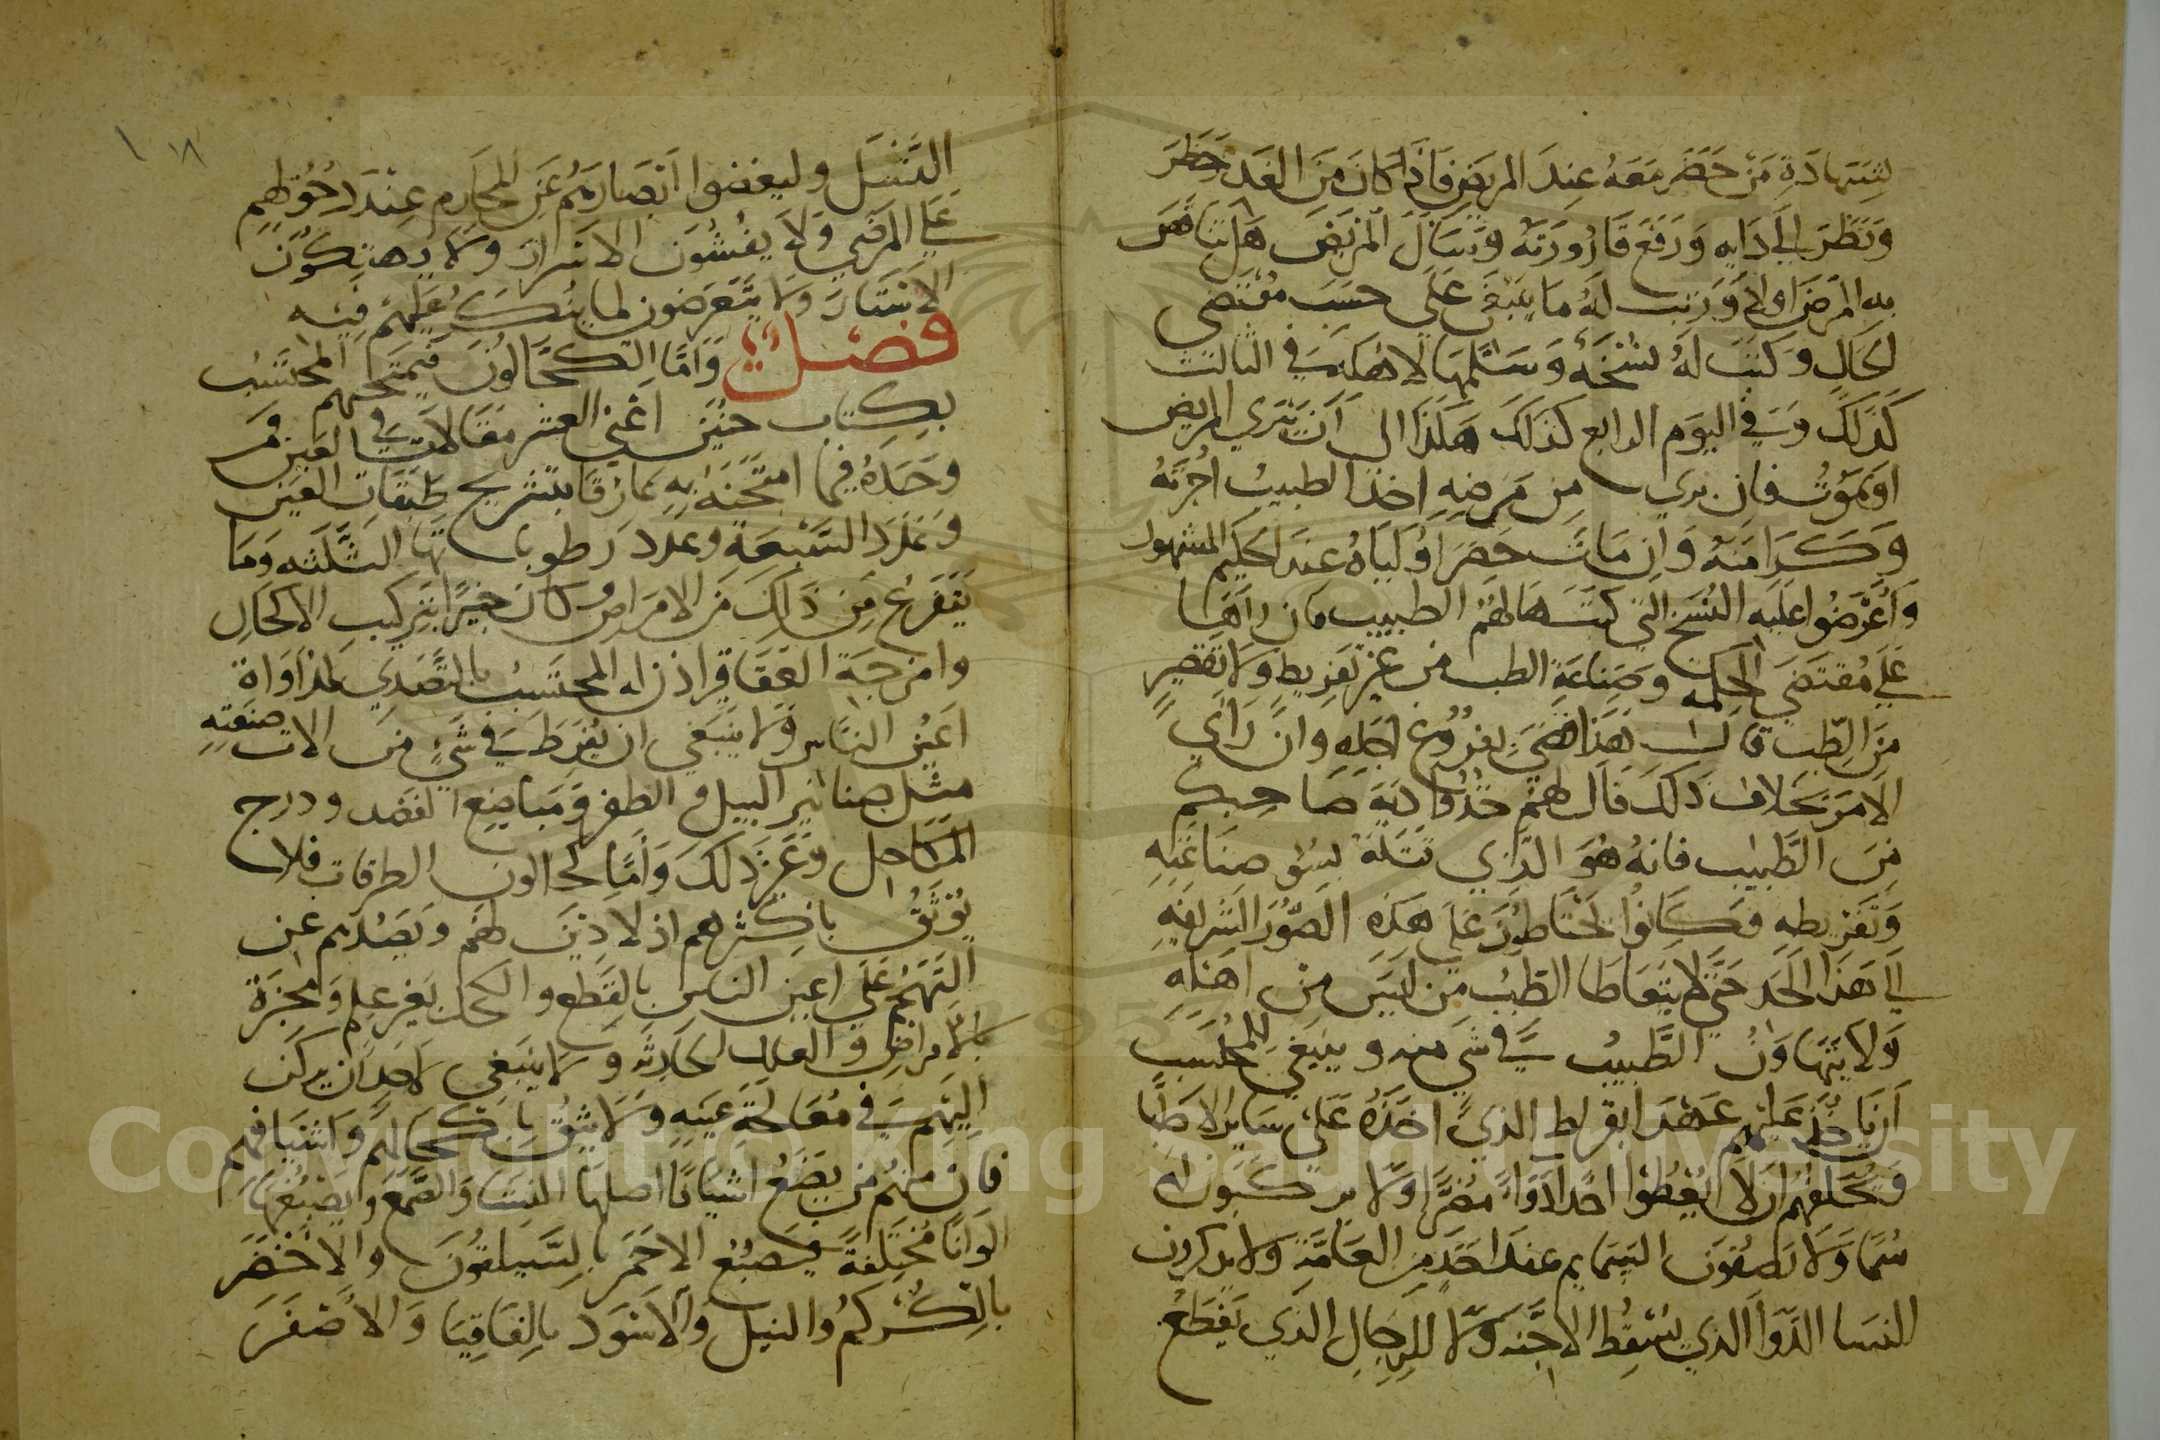 بشهادة من حضر معه عند المريض فاذا كان من الغد حظر
ونظر الي دايه ورفع قارورته وسال المريض هل تناهر
به المرض ام لا ورتب له ما ينبغي علي حسب مقتضي
الحال وكتب له نسخه وسلمها لاهله وفي الثالث
كذلك وفي اليوم الرابع كذلك هكذا الى ان يبري المريض
او يموت فان بري من مرضه اخذ الطبيب اجرته
وكرامته وان مات حضر اولياه عند الحكيم المشهور
واعرضوا عليه النسخ التي كتبها لهم الطبيب فان راها
علي مقتضي الحكمه وصناعة الطب من غير تفريط ولا تقصير
من الطب قال هذا قضي بفروغ اجله وان راي
الامر بخلاف ذلك قال لهم خذوا دية صاحبكم
من الطبيب فانه هو الذي قتله بسو صناعته
وتفريطه فكانوا يحتاطون على هذه الصور الشريفه
الي هذا الحد حتي لا يتعاطا الطب من ليس من اهله
ولا يتهاون الطبيب في شي منه وينبغي للمحتسب
ان ياخذ عليهم عهد ابقراط الذي اخذه على ساير الاطبا
ويحلفهم ان لا يعطوا احدا دواً مضرا ولا يركبون له
سما ولا يصفون السمايم عند احد من العامة ولا يذكرون
النسا الدوا الذي يسقط الاجنه ولا للرجال الذي يقطع
١٨
النسل وليغضوا ابصارهم عن المحارم عند دخولهم
علي المرضي ولا يفشون الاسرار ولا يهتكون
الاستار ولا يتعرضون لما ينكر عليهم فيه
فصل واما الكحالون فيمتحنهم المحتسب
بكتاب حنين اعني العشر مقالات في العين فمن
وجده فيما امتحنه به عارفا بتشريح طبقات العين
وعدد السبعة وعدد رطوباتها الثلثه وما
يتفرع من ذلك من الامراض وكان خبيرا بتركيب الاكحال
وامزجة العقاقير اذن له المحتسب بالتصدي لمداواة
اعين الناس ولا ينبغي ان يفرط في شي من الات صنعته
مثل صنانير السبل و الظفر ومباضع الفصد ودرج
المكاحل وغير ذلك واما كحالون الطرقات فلا
يوثق باكثرهم اذ لا دين لهم ويصدهم عن
التهجم علي اعين الناس بالقطع والكحل بغير علم ومخبرة
بالامراض والعلل الحادثه ولا ينبغي لاحد ان يركن
اليهم في معالجة عينه ولا يثق باكحالهم واشيافهم
فان منهم من يصنع اشيافا اصلها النشا والصمغ ويصبغها
الوانا مختلفة فيصبغ الاحمر بالسيلقون والاخضر
بالكركم والنيل والاسود بالقاقيا والاصفر